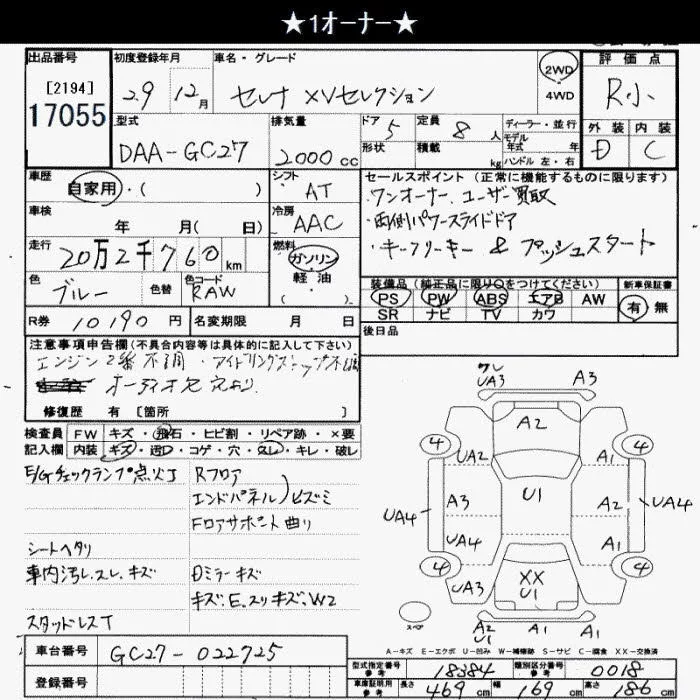 ★1オーナー★
出品番号 [2194] 17055
初度登録年月 29年 12月
車名・グレード セレナ XVセレクション
2WD 4WD
評価点 R小
外装 D 内装 C
型式 DAA-GC27
排気量 2000 cc
ドア 5 形状
定員 8人 積載 kg
ディーラー・並行
モデル年式 年
ハンドル 左・右
車歴 自家用・( )
シフト AT
車検 年 月( 日)
冷房 AAC
走行 20万2千760km
燃料 ガソリン 軽油 ( )
色 ブルー 色替 色コード RAW
R券 10190円
名変期限 月 日
セールスポイント(正常に機能するものに限ります)
・ワンオーナー、ユーザー買取
・両側パワースライドドア
・キーフリーキー & プッシュスタート
装備品(純正品に限り○をつけてください)
PS PW ABS エアB AW
SR ナビ TV カワ
新車保証書 有 無
後日品
注意事項申告欄(不具合内容等は具体的に記入して下さい)
エンジン2番不調・アイドリングストップ不
オーディオ
修復歴 有 [箇所 ]
検査員記入欄
FW キズ・飛石・ヒビ割・リペア跡・×要
内装 キズ・汚レ・コゲ・穴・スレ・キレ・破レ
E/Gチェックランプ点火T
シートヘタリ
車内汚レ、スレ、キズ
スタッドレスT
Rフロア
エンドパネル)ヒズミ
Fロアサポート曲り
Dミラーキズ
キズ、E、スリキズ、W2
ワレ UA3 A3
A2
4 4
UA2 A1
UA4 A3 U1 A2 UA4
UA4 A1
4 4
UA3 XX U1 A2
スペア
A2 U1 A1 A1
A-キズ E-エクボ U-凹み W-補修跡 S-サビ C-腐食 XX-交換済
車台番号 GC27-022725
登録番号
型式指定番号 参考 18384
類別区分番号 参考 0018
車庫証明用 参考 長さ 469cm 幅 169cm 高さ 186cm